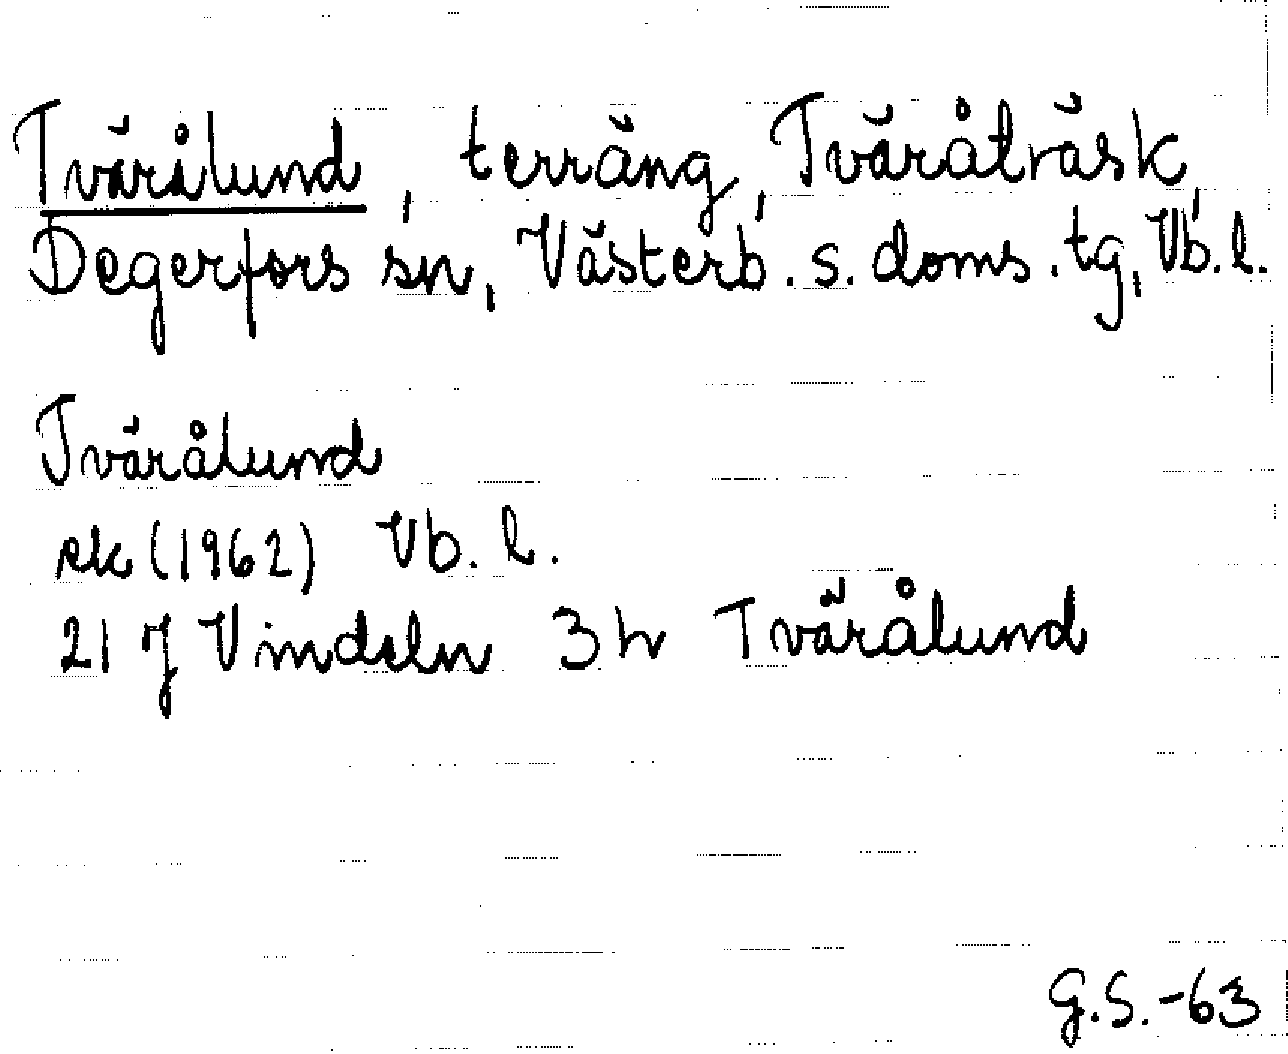 Tvärålund, terräng, Tväråträsk,
Degerfors sn, Västerb. s. doms. tg, Vb. l.
Tvärålund
ek (1962) Vb. l.
21 J Vindeln 3 h Tvärålund
G.S.-63